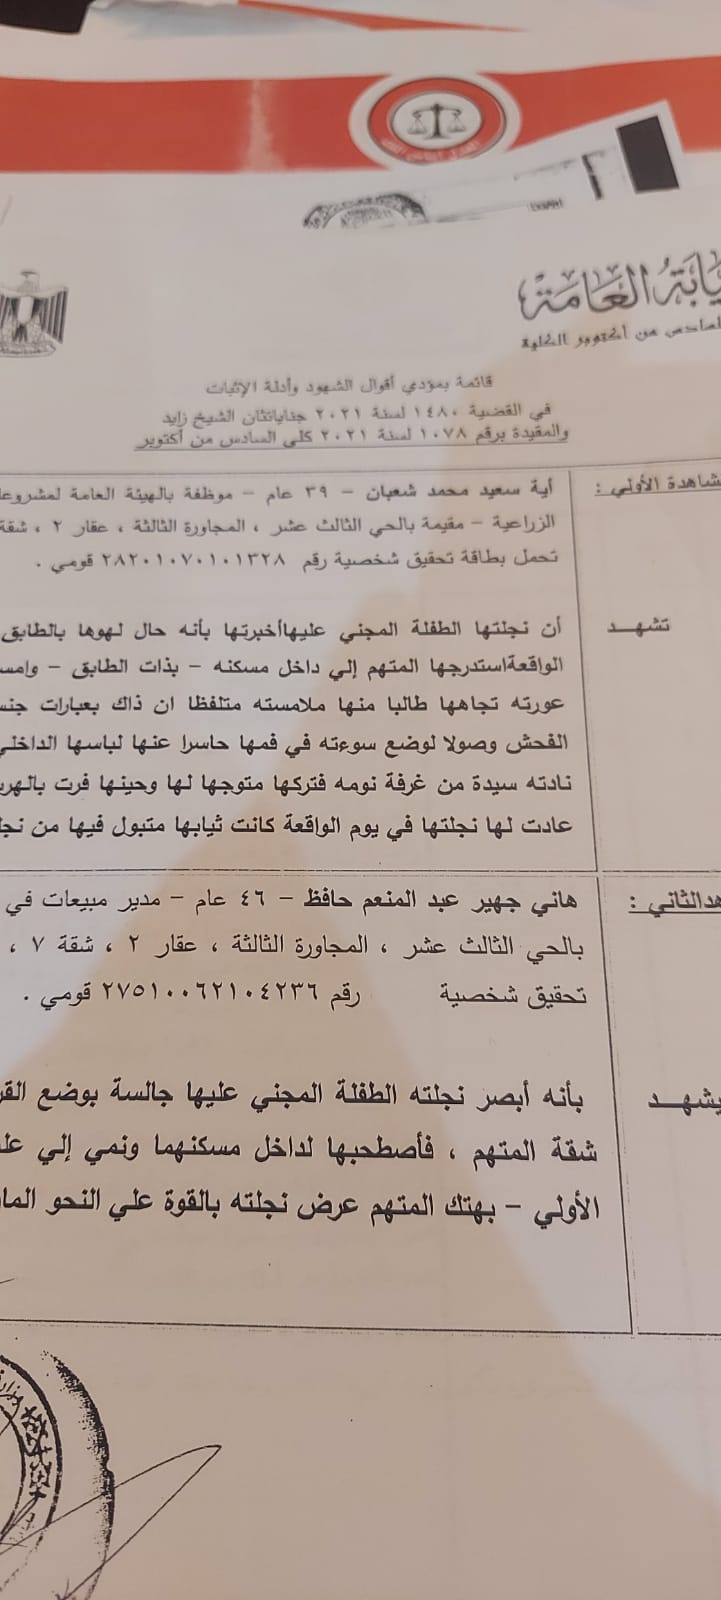 النيابة العامة
السادس من أكتوبر الكلية
قائمة بمؤدي أقوال الشهود وأدلة الإثبات
في القضية ١٤٨٠ لسنة ٢٠٢١ جناياتثان الشيخ زايد
والمقيدة برقم ١٠٧٨ لسنة ٢٠٢١ كلى السادس من أكتوبر
شاهدة الأولي : آية سعيد محمد شعبان – ٣٩ عام – موظفة بالهيئة العامة لمشروعا
الزراعية – مقيمة بالحي الثالث عشر ، المجاورة الثالثة ، عقار ٢ ، شقة
تحمل بطاقة تحقيق شخصية رقم ٢٨٢٠١٠٧٠١٠١٣٢٨ قومي .
تشهـــد أن نجلتها الطفلة المجني عليهاأخبرتها بأنه حال لهوها بالطابق
الواقعةاستدرجها المتهم إلي داخل مسكنه – بذات الطابق – وامس
عورته تجاهها طالبا منها ملامسته متلفظا ان ذاك بعبارات جنس
الفحش وصولا لوضع سوءته في فمها حاسرا عنها لباسها الداخلي
نادته سيدة من غرفة نومه فتركها متوجها لها وحينها فرت بالهر
عادت لها نجلتها في يوم الواقعة كانت ثيابها متبول فيها من نجل
هدالثاني : هاني جهير عبد المنعم حافظ – ٤٦ عام – مدير مبيعات في
بالحي الثالث عشر ، المجاورة الثالثة ، عقار ٢ ، شقة ٧ ،
تحقيق شخصية رقم ٢٧٥١٠٠٦٢١٠٤٢٣٦ قومي .
يشهـــد بأنه أبصر نجلته الطفلة المجني عليها جالسة بوضع القر
شقة المتهم ، فأصطحبها لداخل مسكنهما ونمي إلي عل
الأولي – بهتك المتهم عرض نجلته بالقوة علي النحو الما